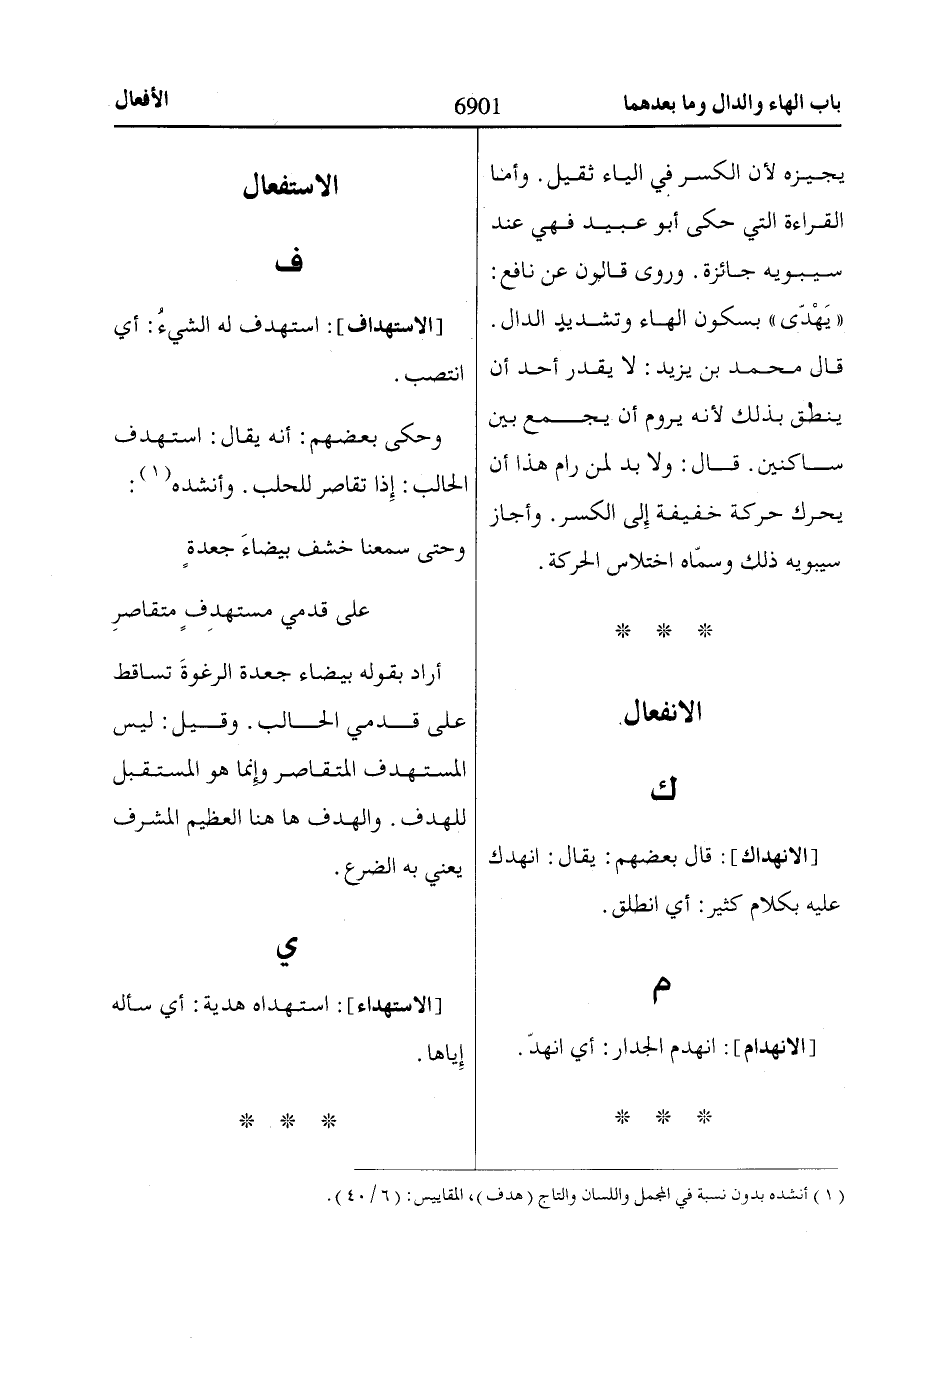 باب الهاء والدال وما بعدهما
6901
الأفعال
يجيزه لأن الكسر في الياء ثقيل. وأما
القراءة التي حكى أبو عبيد فهي عند
سيبويه جائزة. وروى قالون عن نافع:
«يَهْدّى» بسكون الهاء وتشديد الدال.
قال محمد بن يزيد: لا يقدر أحد أن
ينطق بذلك لأنه يروم أن يجمع بين
ساكنين. قال: ولا بد لمن رام هذا أن
يحرك حركة خفيفة إلى الكسر. وأجاز
سيبويه ذلك وسمّاه اختلاس الحركة.
* * *
الانفعال
ك
[الانهداك]: قال بعضهم: يقال: انهدك
عليه بكلام كثير: أي انطلق.
م
[الانهدام]: انهدم الجدار: أي انهدّ.
* * *
الاستفعال
ف
[الاستهداف]: استهدف له الشيءُ: أي
انتصب.
وحكى بعضهم: أنه يقال: استهدف
الحالب: إذا تقاصر للحلب. وأنشده(١):
وحتى سمعنا خشف بيضاءَ جعدةٍ
على قدمي مستهدِفٍ متقاصرِ
أراد بقوله بيضاء جعدة الرغوةَ تساقط
على قدمي الحالب. وقيل: ليس
المستهدف المتقاصر وإنما هو المستقبل
للهدف. والهدف ها هنا العظيم المشرف
يعني به الضرع.
ي
[الاستهداء]: استهداه هدية: أي سأله
إياها.
* * *
(١) أنشده بدون نسبة في المجمل واللسان والتاج (هدف)، المقاييس: (٦/٤٠).